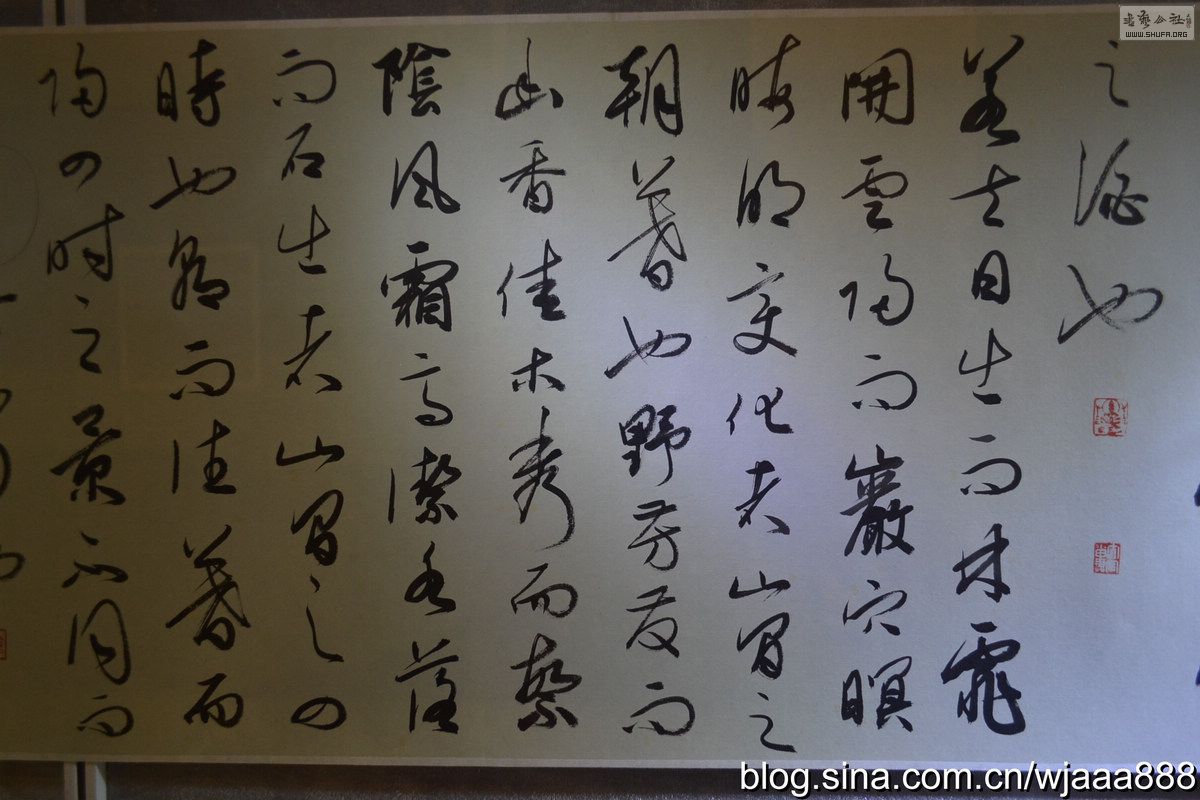 之酒也
若夫日出而林霏
開雲歸而巖穴暝
晦明变化者山間之
朝暮也野芳發而
幽香佳木秀而繁
陰風霜高潔水落
而石出者山間之四
時也朝而往暮而
歸四时之景不同而
書藝公社
WWW.SHUFA.ORG
blog.sina.com.cn/wjaaa888